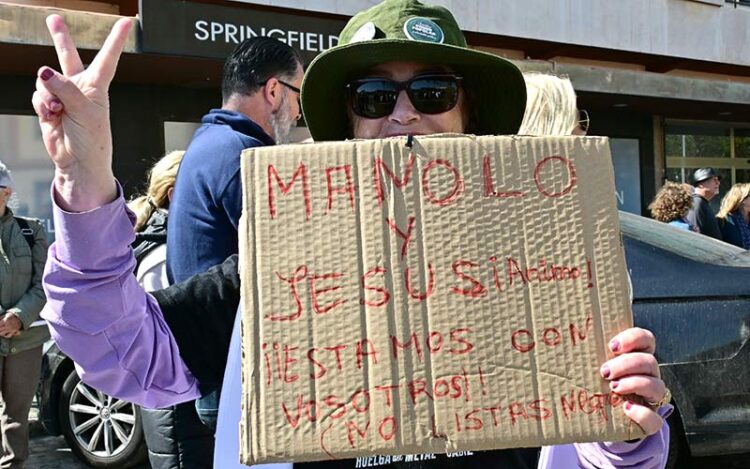 SPRINGFIEL
MANOLO
Y
JESUS ¡Animo!
¡¡ESTAMOS CON
VOSOTROS!!
(NO LISTAS NEGRAS
HUELGA DEL METAL CADIZ